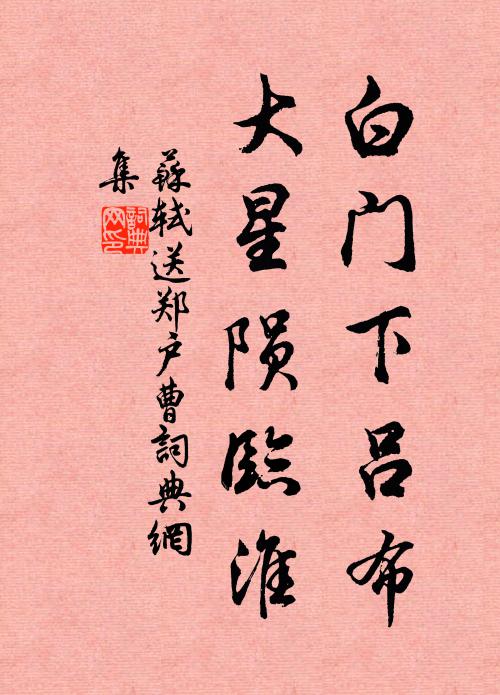 白门下吕布
大星陨臨淮
蘇轼送郑户曹詞典網
集
詞典
网印